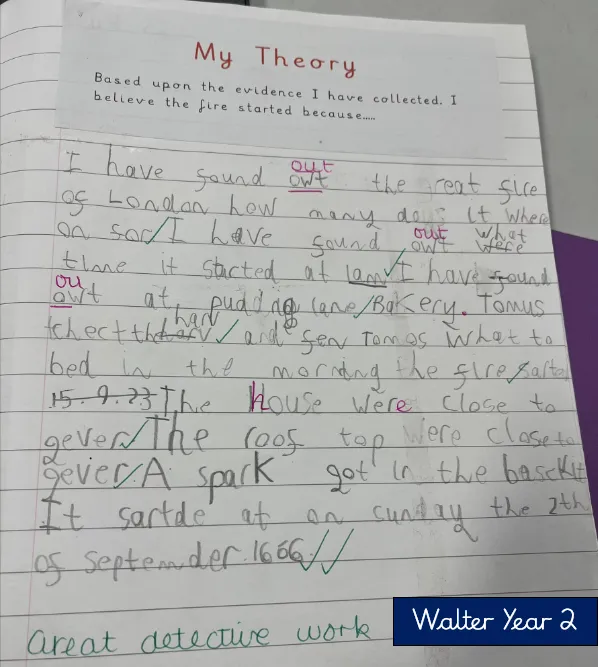 My Theory
Based upon the evidence I have collected. I
believe the fire started because.....
out
I have found owt the great fire
of London how many days it where
out what
on for I have found owt were
time it started at 1am I have found
ou
owt at pudding lane Bakery. Tomus
had
chect the and fen Tomos what to
bed in the morning the fire sarted
15.9.23 The House were close to
gever The roof top were close to
gever A spark got in the basckit
It sartde at on sunday the 2th
of septemder. 1666.
Great detective work
Walter Year 2